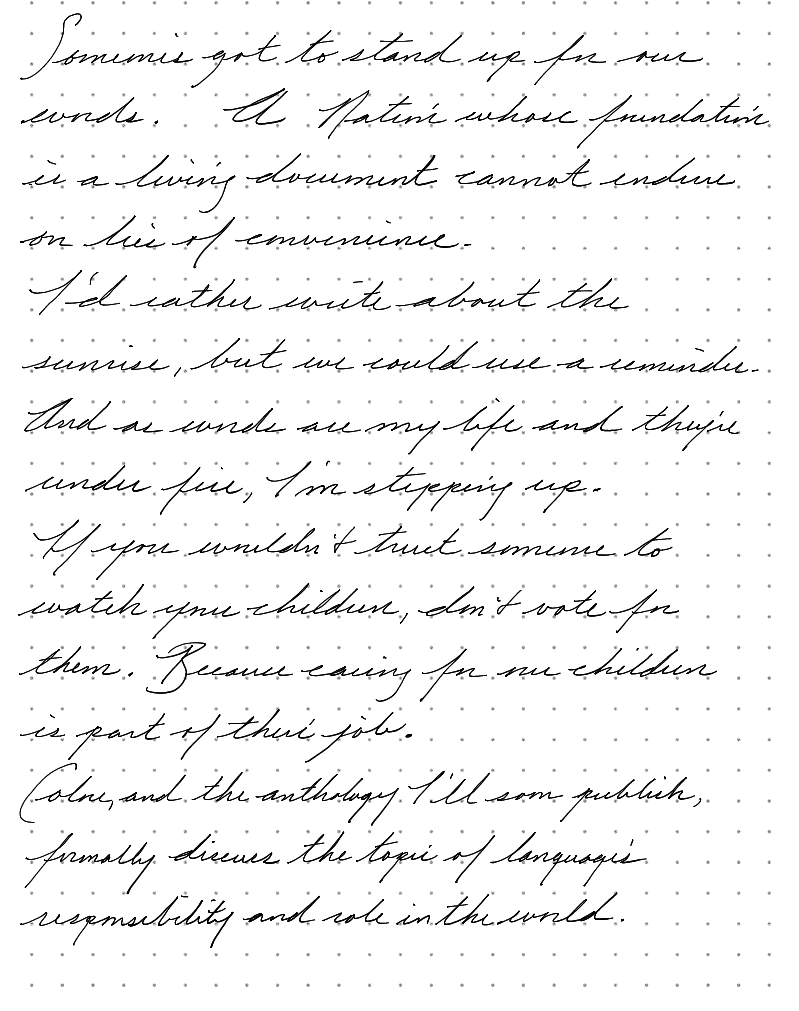 Someone's got to stand up for our
words. A Nation whose foundation
is a living document cannot endure
on lies of convenience.
I'd rather write about the
sunrise, but we could use a reminder.
And as words are my life and they're
under fire, I'm stepping up.
If you wouldn't trust someone to
watch your children, don't vote for
them. Because caring for our children
is part of their job.
Color, and the anthology I'll soon publish,
formally discuss the topic of language's
responsibility and role in the world.